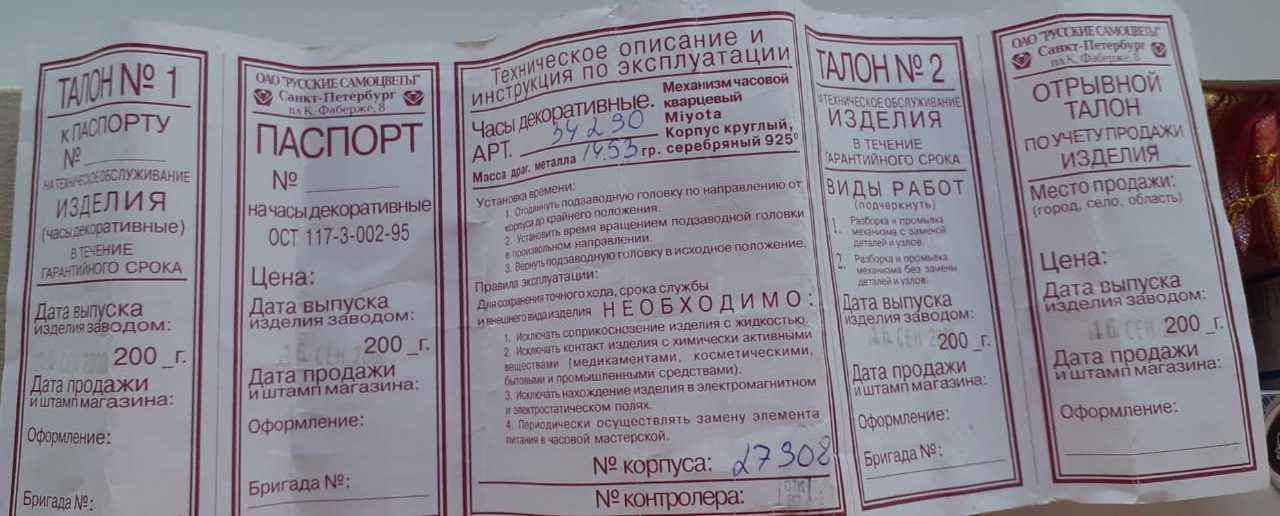 ТАЛОН № 1
К ПАСПОРТУ
№
НА ТЕХНИЧЕСКОЕ ОБСЛУЖИВАНИЕ
ИЗДЕЛИЯ
(часы декоративные)
В ТЕЧЕНИЕ
ГАРАНТИЙНОГО СРОКА
Дата выпуска
изделия заводом:
200 _г.
Дата продажи
и штамп магазина:
Оформление:
Бригада №:
ОАО "РУССКИЕ САМОЦВЕТЫ"
Санкт-Петербург
пл.К. Фаберже, 8
ПАСПОРТ
№
на часы декоративные
ОСТ 117-3-002-95
Цена:
Дата выпуска
изделия заводом:
16 СЕН
200 _г.
Дата продажи
и штамп магазина:
Оформление:
Бригада №:
Техническое описание и
инструкция по эксплуатации
Часы декоративные.
АРТ. 34290
Масса драг. металла 14.53 гр.
Механизм часовой
кварцевый
Miyota
Корпус круглый,
серебряный 925°
Установка времени:
1. Отодвинуть подзаводную головку по направлению от
корпуса до крайнего положения.
2. Установить время вращением подзаводной головки
в произвольном направлении.
3. Вернуть подзаводную головку в исходное положение.
Правила эксплуатации:
Для сохранения точного хода, срока службы
и внешнего вида изделия НЕОБХОДИМО:
1. Исключать соприкосновение изделия с жидкостью.
2. Исключать контакт изделия с химически активными
веществами (медикаментами, косметическими,
бытовыми и промышленными средствами).
3. Исключать нахождение изделия в электромагнитном
и электростатическом полях.
4. Периодически осуществлять замену элемента
питания в часовой мастерской.
№ корпуса: 27308
№ контролера:
ОТК
ТАЛОН № 2
ТЕХНИЧЕСКОЕ ОБСЛУЖИВАНИЕ
ИЗДЕЛИЯ
В ТЕЧЕНИЕ
ГАРАНТИЙНОГО СРОКА
ВИДЫ РАБОТ
(подчеркнуть)
1. Разборка и промывка
механизма с заменой
деталей и узлов.
2. Разборка и промывка
механизма без замены
деталей и узлов.
Дата выпуска
изделия заводом:
16 СЕН
200 _г.
Дата продажи
и штамп магазина:
Оформление:
Бригада №:
ОАО "РУССКИЕ САМОЦВЕТЫ"
Санкт-Петербург
пл.К. Фаберже, 8
ОТРЫВНОЙ
ТАЛОН
ПО УЧЕТУ ПРОДАЖИ
ИЗДЕЛИЯ
Место продажи:
(город, село, область)
Цена:
Дата выпуска
изделия заводом:
16 СЕН
200 _г.
Дата продажи
и штамп магазина:
Оформление: